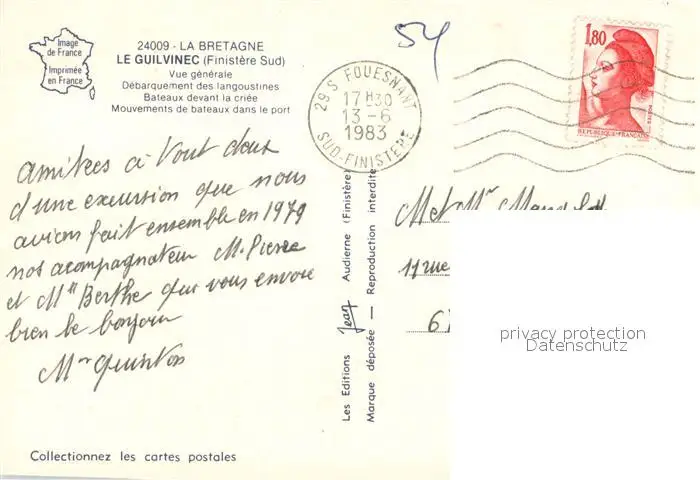 Image
de France
Imprimée
en France
24009 - LA BRETAGNE
LE GUILVINEC (Finistère Sud)
Vue générale
Débarquement des langoustines
Bateaux devant la criée
Mouvements de bateaux dans le port
54
29 S FOUESNANT
17H30
13-6
1983
SUD-FINISTERE
1,80
POSTES
REPUBLIQUE FRANÇAISE
amitees a Vout deux
d'une excursion que nous
avions fait ensemble en 1979
nos acompagnateur M. Pierre
et Mlle Berthe qui vous envoie
bien le bonjour
Mme
Les Editions Jean Audierne (Finistère)
Marque déposée — Reproduction interdite
M et Mme
11 rue
67
privacy protection
Datenschutz
Collectionnez les cartes postales